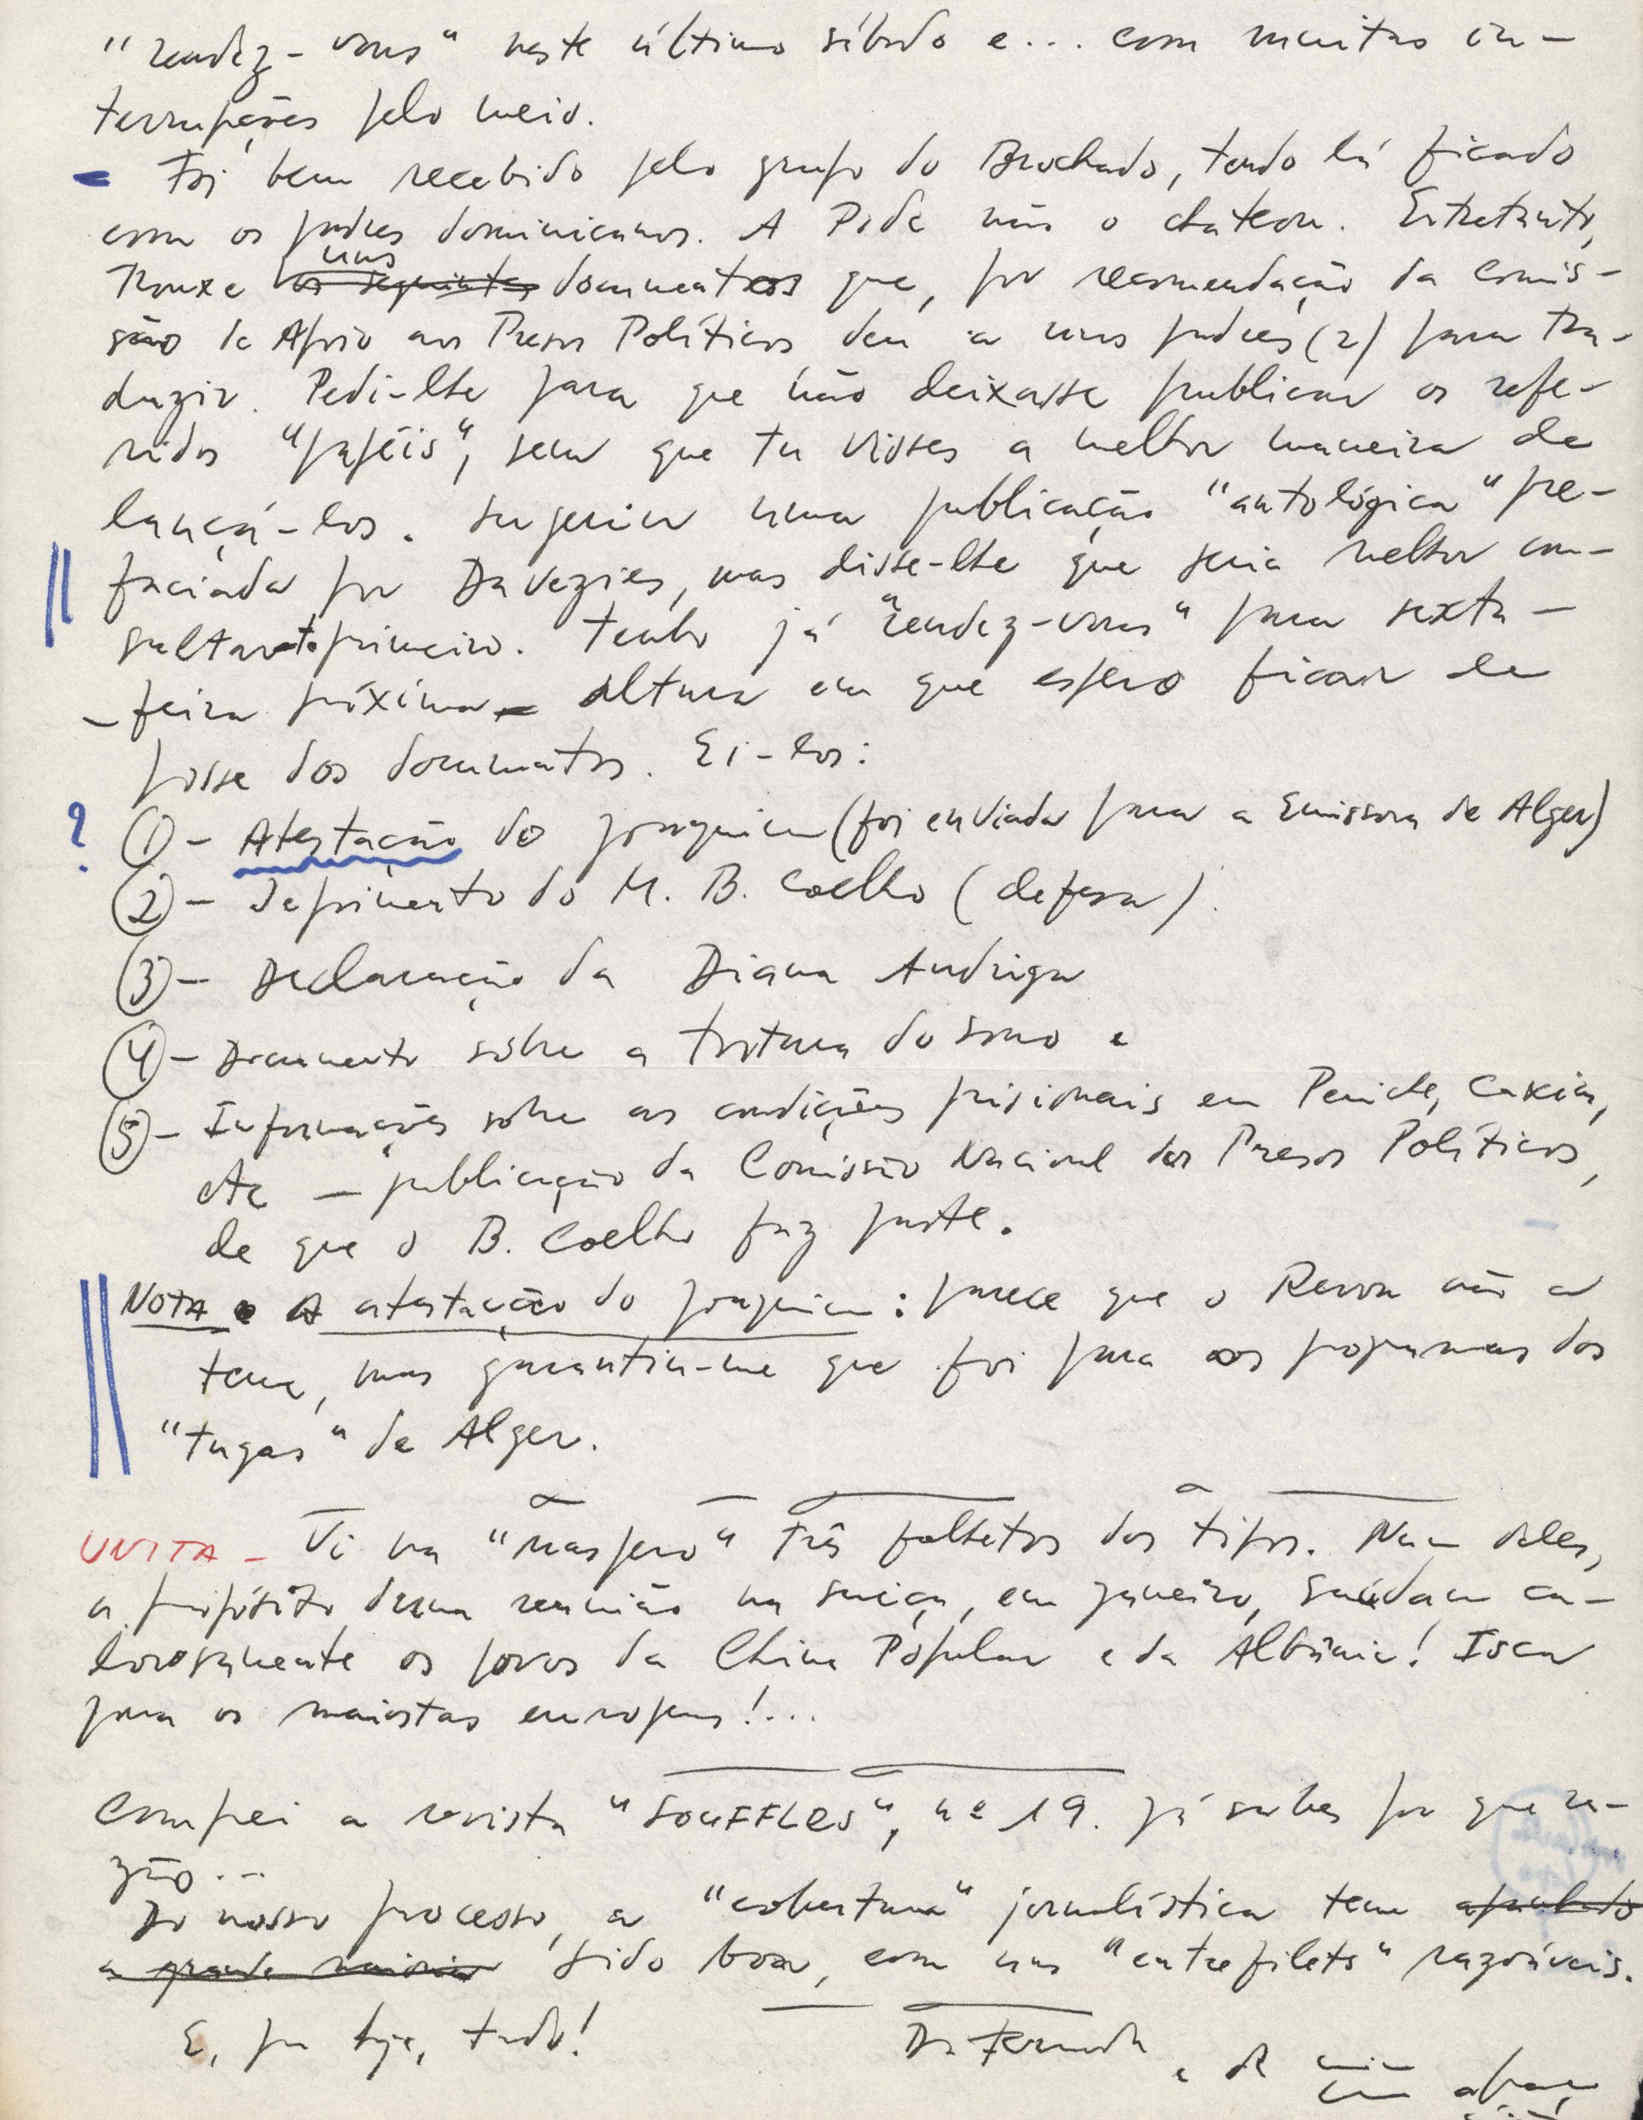 "rendez-vous" neste último sábado e... com muitas in-
terrupções pelo meio.
- Foi bem recebido pelo grupo do Brochado, tendo lá ficado
com os padres dominicanos. A Pide não o chateou. Entretanto,
Trouxe os seguintes uns documentos que, por recomendação da Comis-
são de Apoio aos Presos Políticos deu a uns padres (2) para tra-
duzir. Pedi-lhe para que não deixasse publicar os refe-
ridos "papéis", sem que tu visses a melhor maneira de
lançá-los. Sugeriu uma publicação "antológica" pre-
faciada por Davezies, mas disse-lhe que seria melhor con-
sultar-te primeiro. Tenho já "rendez-vous" para sexta-
-feira próxima - altura em que espero ficar de
posse dos documentos. Ei-los:
? (1) - Atestação do Joaquim (foi enviada para a Emissora de Alger)
(2) - Depoimento do M. B. Coelho (defesa).
(3) - Declaração da Diana Andringa
(4) - Documento sobre a tortura do sono e
(5) - Informações sobre as condições prisionais em Peniche, Caxias,
etc - publicação da Comissão Nacional dos Presos Políticos,
de que o B. Coelho faz parte.
NOTA A atestação do Joaquim: parece que o não a
teve, mas garantiu-me que foi para os programas dos
"tugas" de Alger.
UNITA - Vi na "Maspero" três folhetos dos tipos. Num deles,
a propósito duma reunião na Suiça, em Janeiro, saúdam ca-
lorosamente os povos da China Popular e da Albânia! Isca
para os maoistas europeus!...
Comprei a revista "SOUFFLES", nº 19. Já sabes por que ra-
zão...
Do nosso processo, a "cobertura" jornalística tem apanhado
a grande maioria sido boa, com uns "entrefilets" razoáveis.
E, por hoje, tudo!
Da Fernanda
e de mim
um abraço